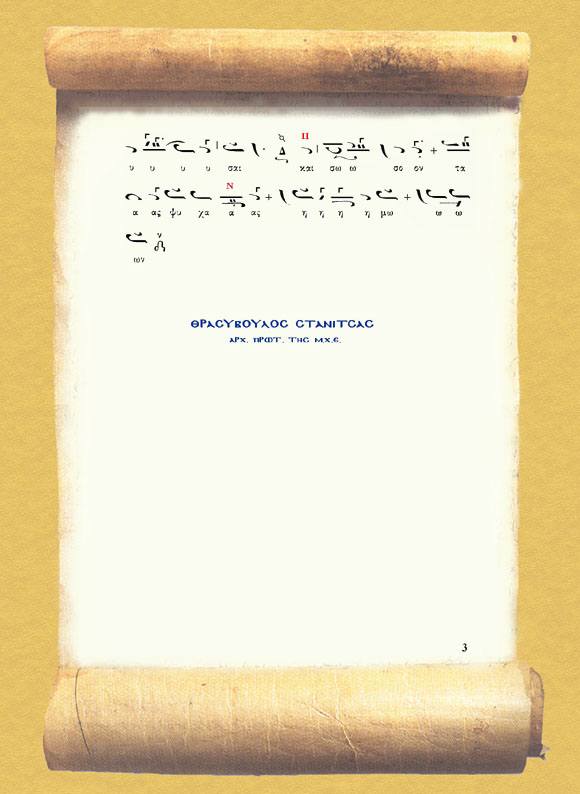 Π
υ υ υ υ σαι Δ και σω ω σο ον τα
Ν
α ας ψυ χα α ας η η η η μω ω ω
ων ν
ΘΡΑCΥΒΟΥΛΟC CΤΑΝΙΤCΑC
ΑΡΧ. ΠΡΩΤ. ΤΗC Μ.Χ.Є.
3